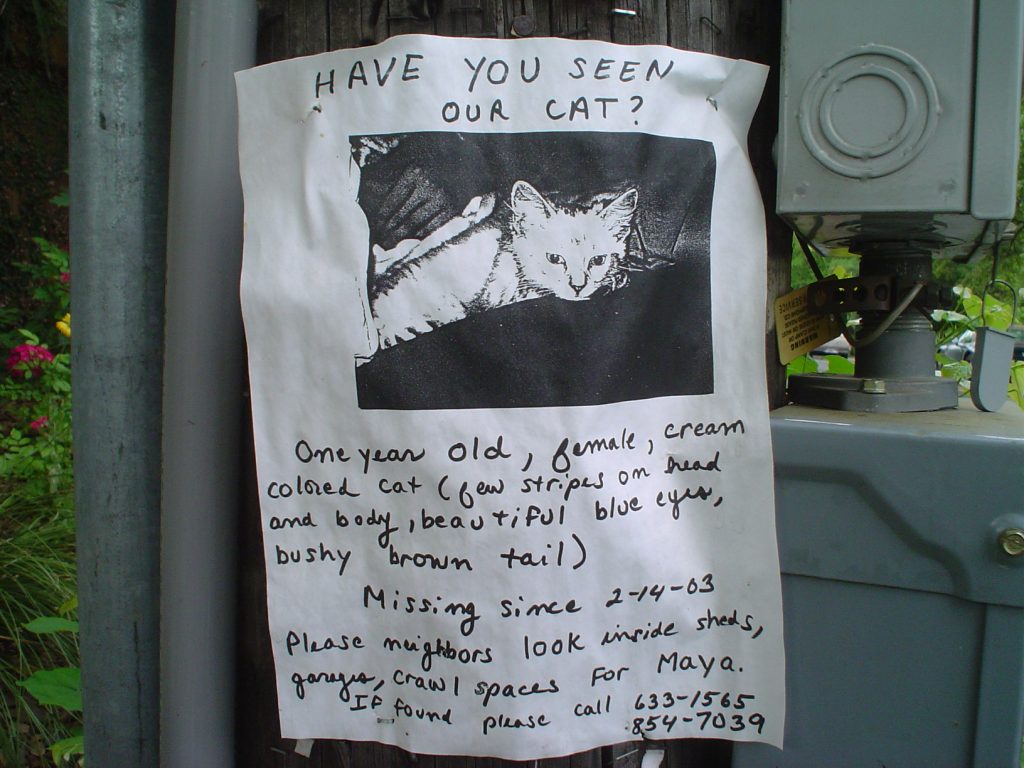 HAVE YOU SEEN
OUR CAT?
One year old, female, cream
colored cat (few stripes on head
and body, beautiful blue eyes,
bushy brown tail)
Missing since 2-14-03
Please neighbors look inside sheds,
garages, crawl spaces for Maya.
If found please call 633-1565
854-7039
WARNING